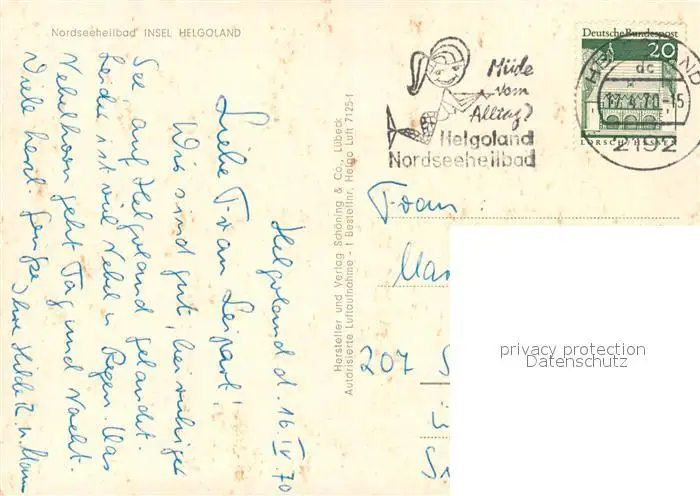 Nordseeheilbad INSEL HELGOLAND
Helgoland d. 16. IV 70
Liebe Frau Leipart!
Wir sind gut, bei ruhiger
See auf Helgoland gelandet.
Leider ist viel Nebel u. Regen. Das
Nebelhorn geht Tag und Nacht.
Viele herzl. Grüße, Ihre Hilde u. Mann
Hersteller und Verlag Schöning & Co., Lübeck
Autorisierte Luftaufnahme - † Bestellnr. Helgo Luft 7125-1
Müde
vom
Alltag?
Helgoland
Nordseeheilbad
Deutsche Bundespost
20
LORSCH/HESSEN
dc
17.4.70-15
2192
Frau:
207
privacy protection
Datenschutz